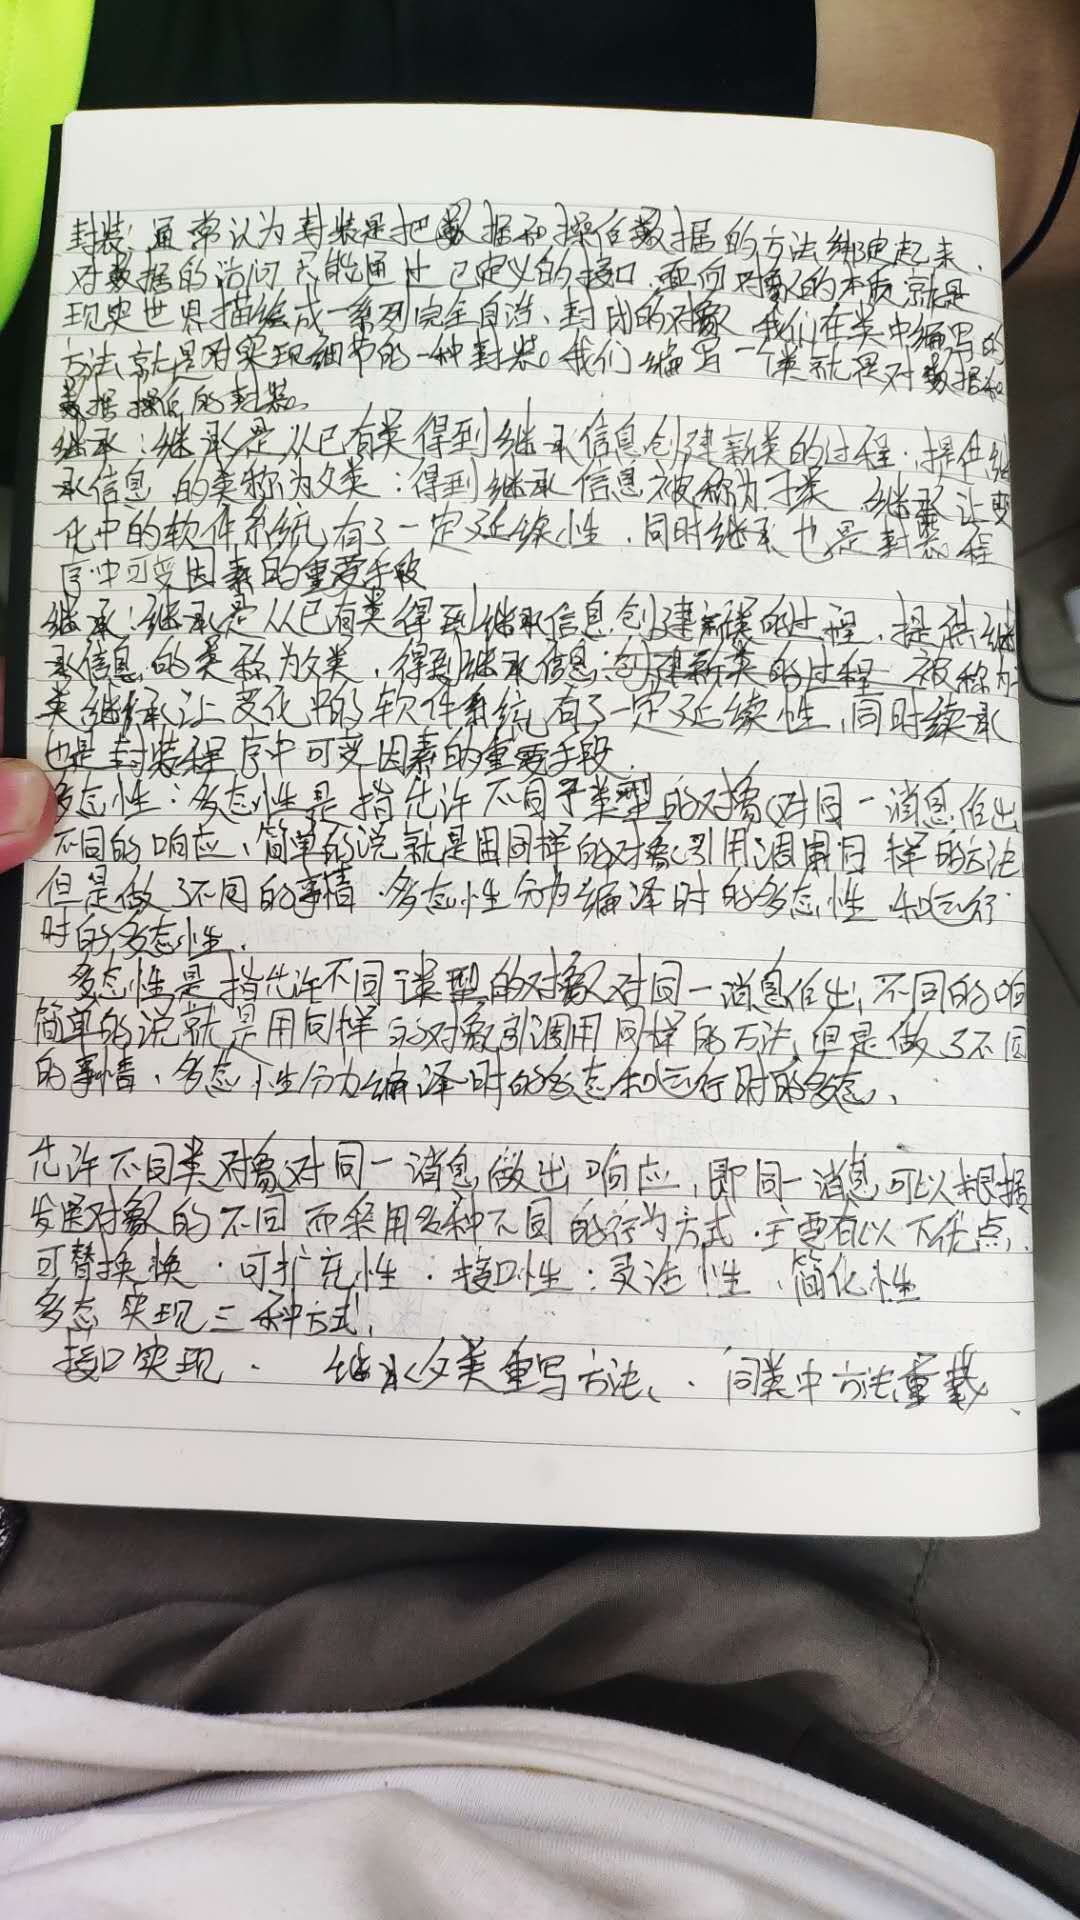 封装：通常认为封装是把数据和操作数据的方法绑定起来、
对数据的访问只能通过已定义的接口、面向对象的本质就是
现实世界描绘成一系列完全自治、封闭的对象 我们在类中编写的
方法就是对实现细节的一种封装。我们编写一个类就是对数据和
数据操作的封装。
继承：继承是从已有类得到继承信息创建新类的过程．提供继
承信息的类称为父类：得到继承信息被称为子类 继承让变
化中的软件系统有了一定延续性．同时继承也是封装程
序中可变因素的重要手段
继承：继承是从已有类得到继承信息创建新类的过程、提供继
承信息的类称为父类、得到继承信息创建新类的过程 被称为
类继承让变化中的软件系统有了一定延续性,同时续承
也是封装程序中可变因素的重要手段．
多态性：多态性是指允许不同子类型的对象对同一消息作出
不同的响应、简单的说就是用同样的对象引用调用同样的方法
但是做了不同的事情．多态性分为编译时的多态性 和运行
时的多态性．
多态性是指允许不同类型的对象对同一消息作出,不同的响
简单的说就是用同样的对象引调用同样的方法,但是做了不同
的事情、多态性分为编译时的多态和运行时的多态、
允许不同类对象对同一消息做出响应,即同一消息可以根据
发送对象的不同而采用多种不同的行为方式．主要有以下优点、
可替换换．可扩充性．接口性：灵活性．简化性
多态实现三种方式,
接口实现． 继承父类重写方法、．同类中方法重载、